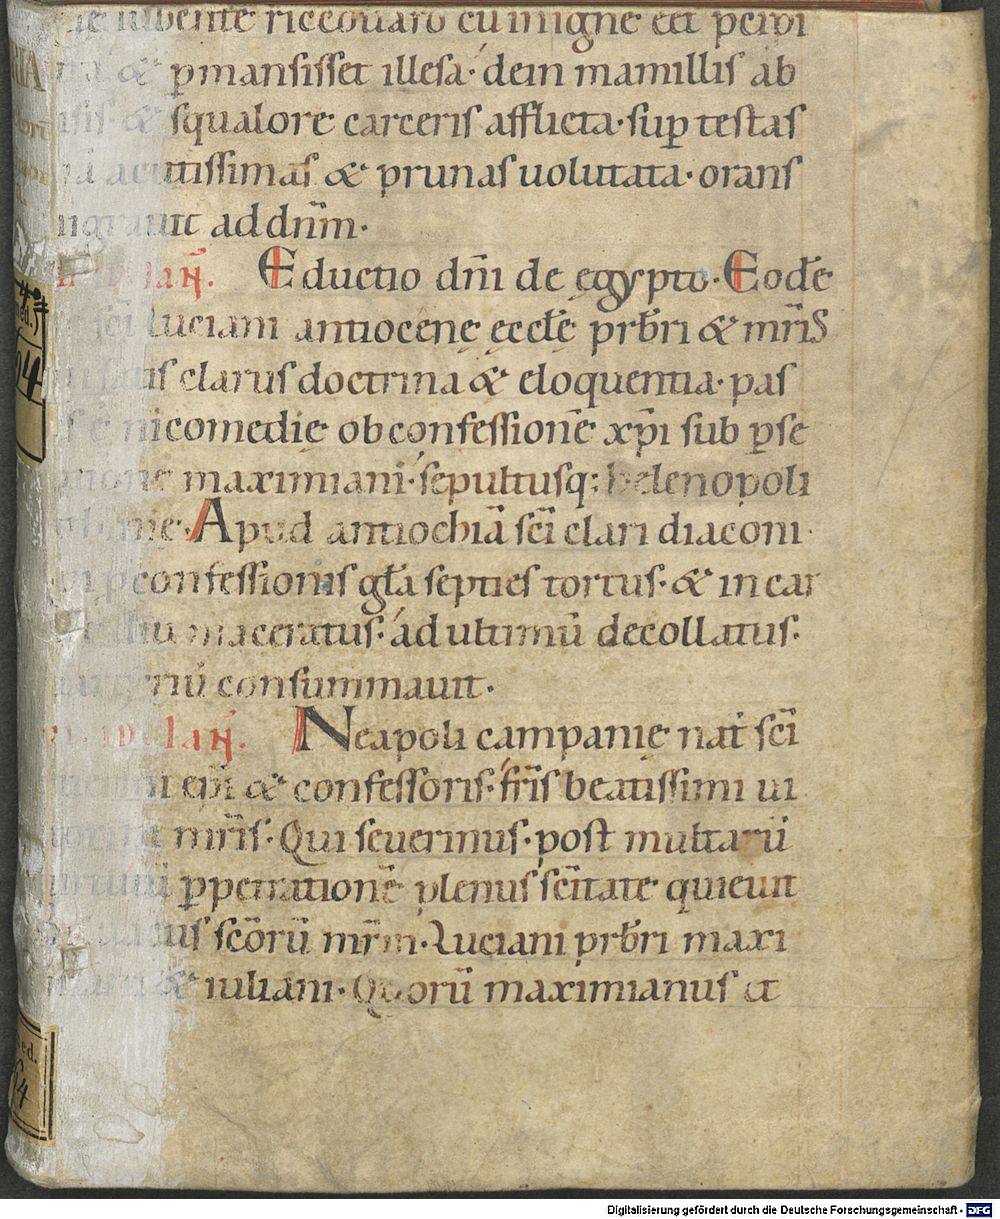 iubente riccouaro cū ī igne eēt perpi
& p̱mansisset illesa· dein mamillis ab
& squalore carceris afflicta· sup̱ testas
acutissimas & prunas uolutata· orans
migrauit ad dn̄m·
Ian̄. Eductio dn̄i de ęgypto. Eodē
sc̄i luciani antiocenę ęccłę prb̄ri & mr̄is
clarus doctrina & eloquentia· pas
ē nicomedię ob confessionē xp̄i sub p̱se
maximiani· sepultusq; helenopoli
Apud antiochiā sc̄i clari diaconi·
p confessionis gła septies tortus· & in car
maceratus· ad ultimū decollatus·
consummauit·
Ian̄. Neapoli campanię nat̄ sc̄i
ep̄i & confessoris· fr̄is beatissimi ui
mr̄is· Qui seuerinus· post multarū
p̱petrationē plenus sc̄itate quieuit
sc̄orū mr̄m· Luciani prb̄ri maxi
& iuliani· Quorū maximianus et
ed.)
94
ed.
64
Digitalisierung gefördert durch die Deutsche Forschungsgemeinschaft - DFG